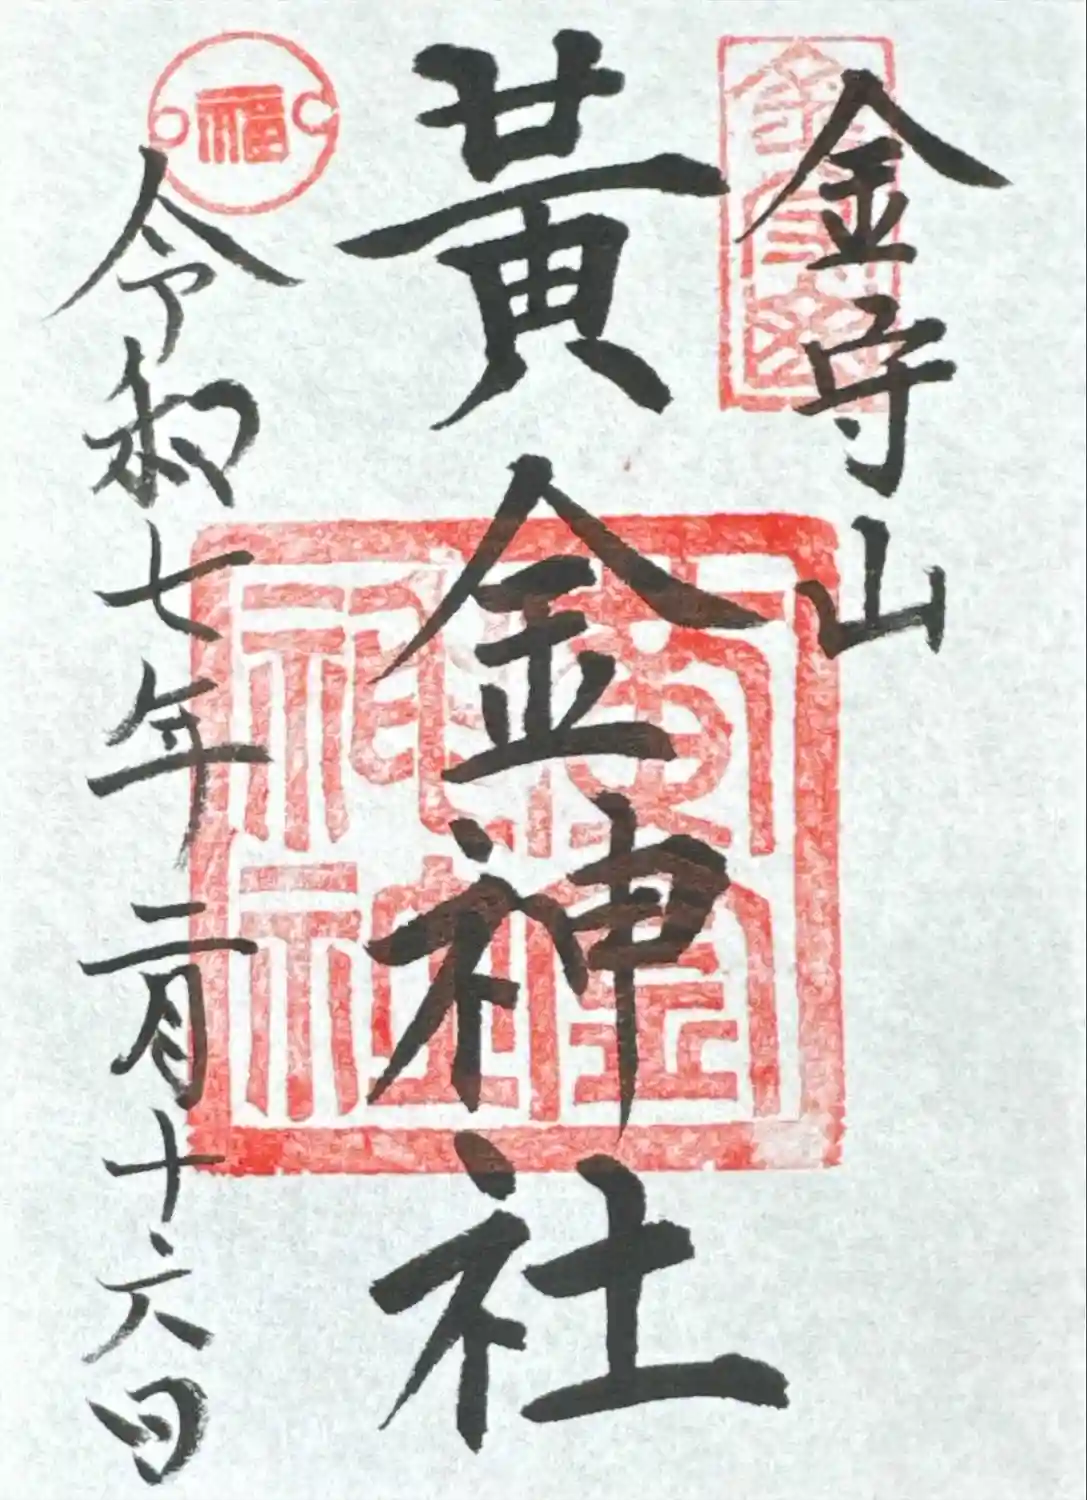 金守山
黄金神社
令和七年二月十六日
福
黄金神社